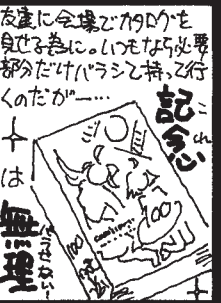 友達に会場でカタログを
見せる為に。いつもなら必要
部分だけバラシて持って行
くのだがー…
記念
これ
は
無理
100